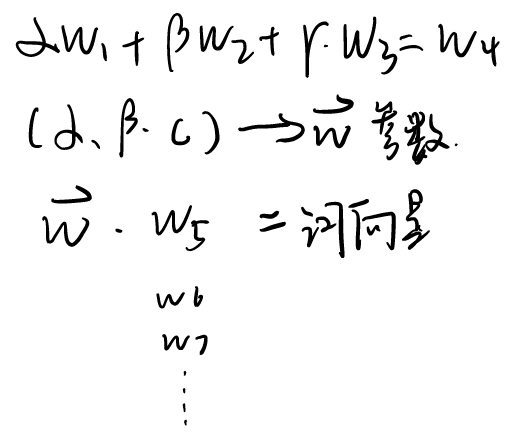 αw₁ + βw₂ + γ·w₃ = w₄
(α、β. c) → w⃗ 参数.
w⃗ · w₅ = 词向量
w₆
w₇
⋮